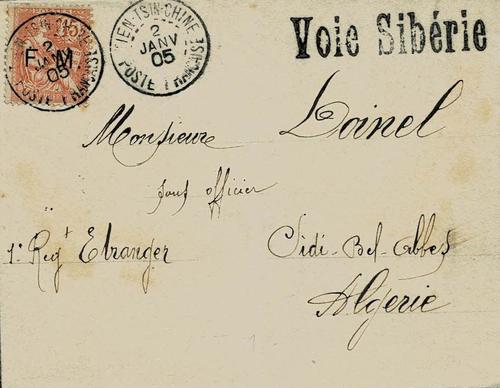 15
F.M.
TIEN-TSIN-CHINE
2
JANV
05
POSTE FRANÇAISE
TIEN-TSIN-CHINE
2
JANV
05
POSTE FRANÇAISE
Voie Sibérie
Monsieur Loinel
sous officier
1er Regt Etranger Sidi-Bel-abbes
Algerie